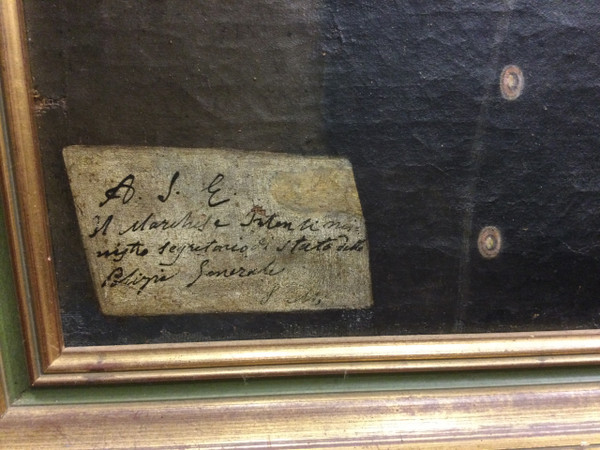 A. S. E.
Il Marchese Intonti mi
nistro segretario di stato della
Polizia Generale